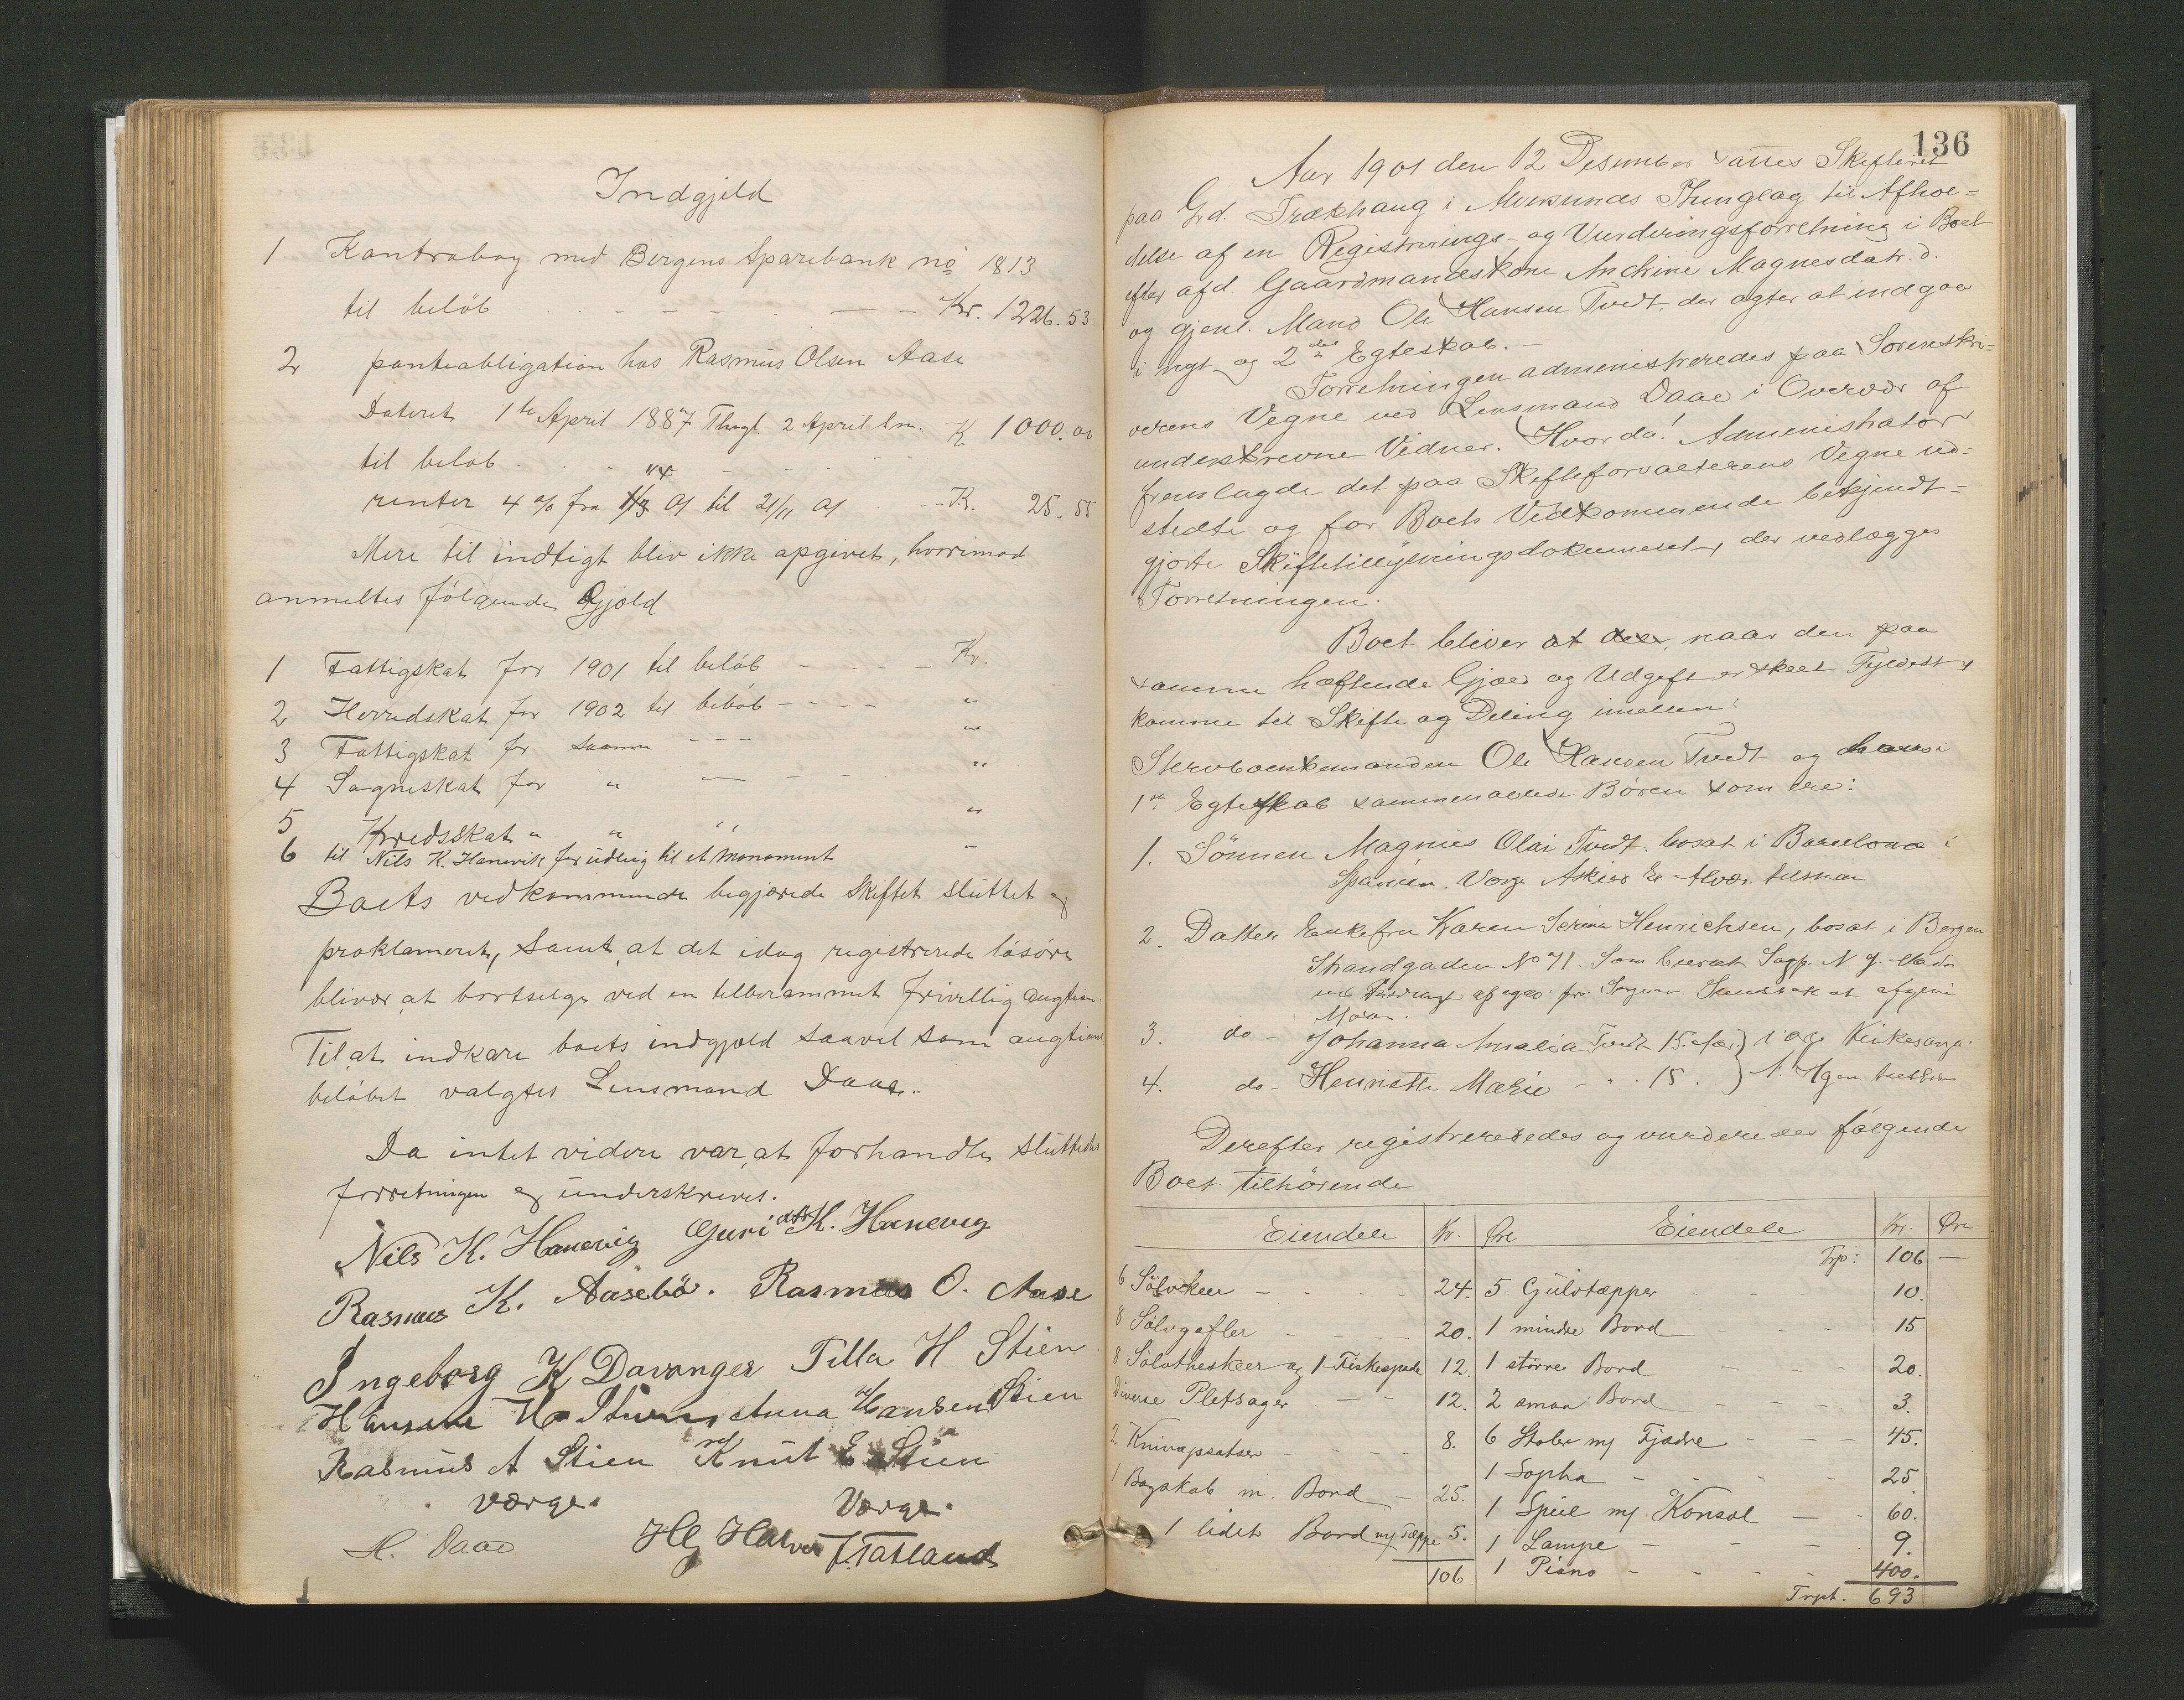 Indgjeld
1 Kontrabog med Bergens Sparebank no 1813
til beløb Kr. 1226.53
2 panteobligation hos Rasmus Olsen Aase
Dateret 1te April 1887 Thngl 2 April l.m. K 1000.00
til beløb
renter 4 % fra 01 til 21/11 01 K. 25.55
Mere til indtigt blev ikke opgivet, hvorimod
anmeltes følgende Gjeld
1 Fattigskat for 1901 til beløb Kr.
2 Herredskat for 1902 til beløb "
3 Fattigskat for samme "
4 Sogneskat for " "
5 Kredsskat " " " "
6 til Nils K. Hanevik for udlæg til et monoment "
Boets vedkommende begjærede skiftet sluttet og
proklameret, samt at det idag registrerede løsøre
bliver at bortselge ved en tilberammet frivillig augtion.
Til at indkære boets indgjeld saavel som augtions
beløbet valgtes Lensmand Daae.
Da intet videre var at forhandle sluttedes
forretningen og underskreves.
Nils K. Hanevig Guri K. Hanevig
Rasmus K. Aasebø. Rasmus O. Aase
Ingeborg K Davanger Tilla H Stien
Anna Hansen Stien
Rasmus A Stien Knut E Stien
værge. Værge.
H. Daae J. Tatland
136
Aar 1901 den 12 Desember sattes Skifteret
paa Grd. Trækhaug i Alversunds Thinglag til Afhol=
delse af en Registrerings- og Vurderingsforretning i Boet
efter afd. Gaardmandskone Anchine Magnesdatr. d.
og gjenl. Mand Ole Hansen Tvedt, der agter at indgaa
i nyt og 2det Egteskab. -
Forretningen administreredes paa Sorenskri=
verens Vegne ved Lensmand Daae i Overvær af
underskrevne Vidner. Hvorda! Administrator
fremlagde det paa Skifteforvalterens Vegne ud=
stedte og for Boets Vedkommende bekjendt=
gjorte Skiftetillysningsdokument, der vedlægges
Forretningen.
Boet bliver, naar den paa
samme hæftende Gjæld og Udgift er skeet Fyldest
komme til Skifte og Deling imellem:
Stervboenkemanden Ole Hansen Tvedt og hans i
1ste Egteskab sammenavlede Børn som ere:
1. Sønnen Magnus Olai Tvedt bosat i Barcelona i
Spanien. Værge
2. Datter Enkefru Karen Serine Henrichsen, bosat i Bergen
Strandgaden No 71. Som
3. do - Johanna Amalia Tvedt 15. Aar
4. do - Henriette Marie - " - 15.
Derefter registreredes og vurderedes følgende
Boet tilhørende
Eiendele Kr. Øre Eiendele Kr. Øre
Trp: 106 -
6 Sølvskeer 24. 5 Gulvtæpper 10.
8 Sølvgafler 20. 1 mindre Bord 15
8 Sølvtheskeer og 1 Fiskespade 12. 1 større Bord 20.
Diverse Pletsager 12. 2 smaa Bord 3.
2 Knivopsatser 8. 6 Stoler m/ Fjædre 45.
1 Bogskab m. Bord 25. 1 Sopha 25
1 lidet Bord m/ Tæppe 5. 1 Speil m/ Konsol 60.
1 Lampe 9.
106 1 Piano 400.
Trpt. 693